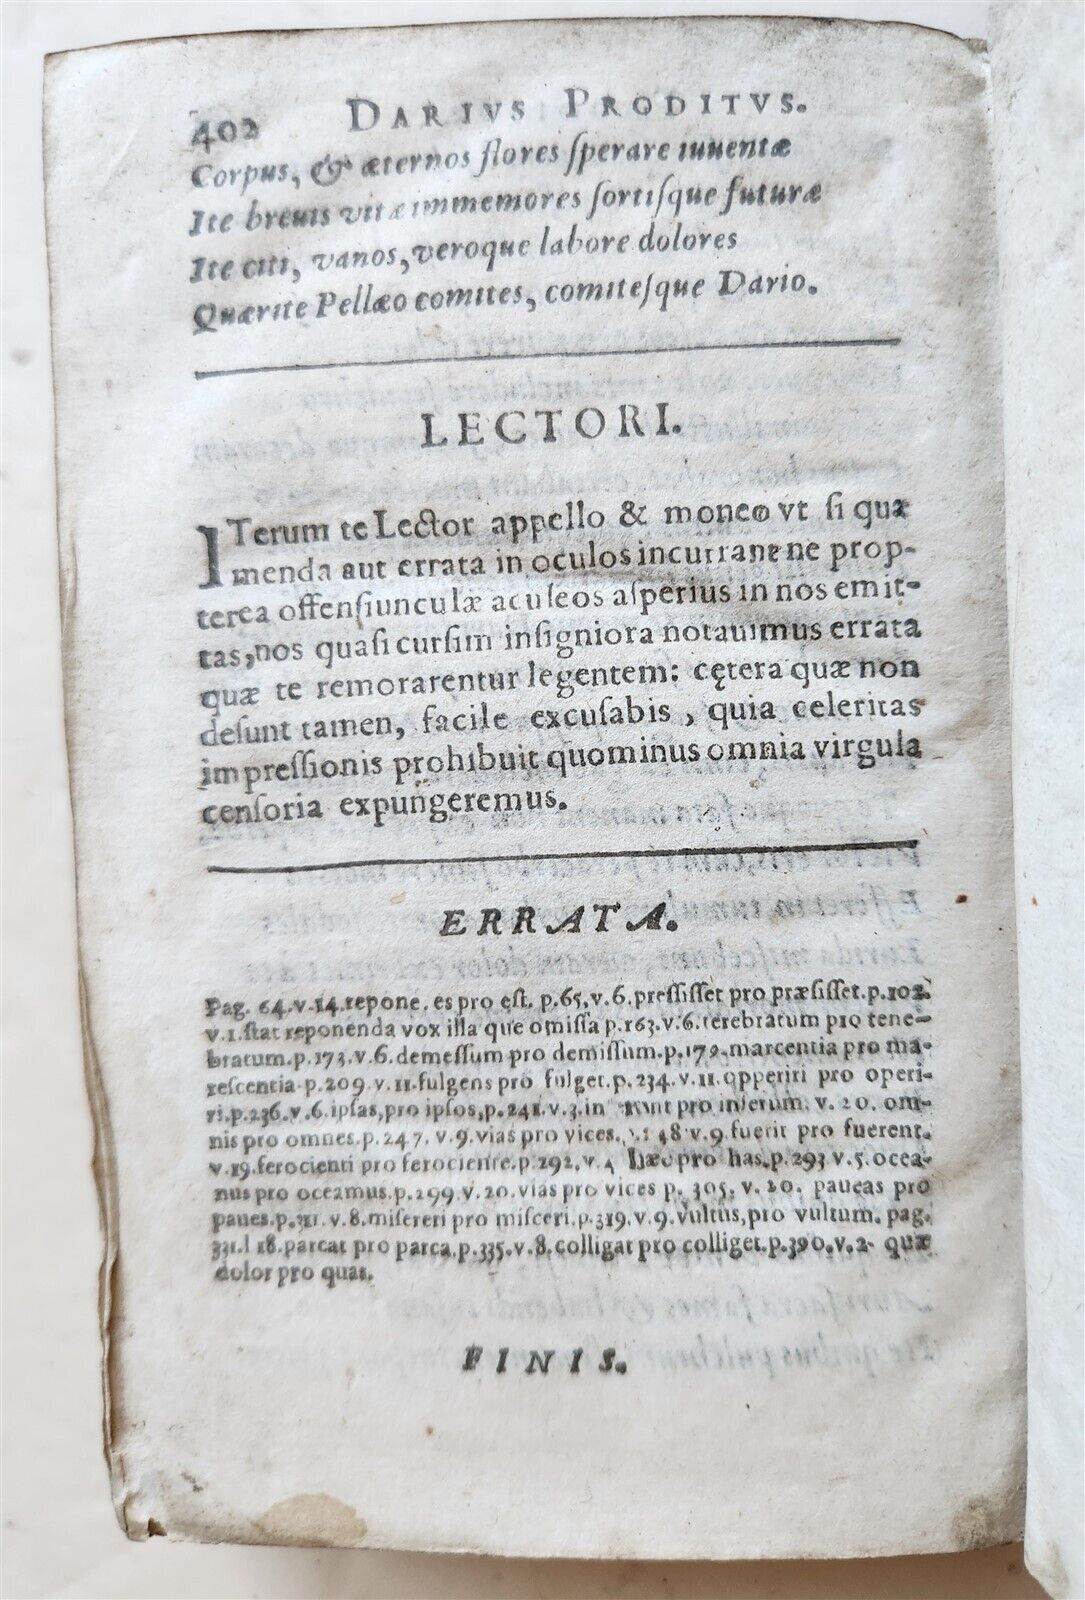 402 DARIVS PRODITVS.
Corpus, & æternos flores ſperare iuuentæ
Ite breuis vitæ immemores ſortiſque futuræ
Ite citi, vanos, veroque labore dolores
Quærite Pellæo comites, comiteſque Dario.
LECTORI.
ITerum te Lector appello & moneo vt ſi quæ
menda aut errata in oculos incurrant ne prop-
terea offenſiunculæ aculeos aſperius in nos emit-
tas, nos quaſi curſim inſigniora notauimus errata
quæ te remorarentur legentem: cętera quæ non
deſunt tamen, facile excuſabis, quia celeritas
impreſſionis prohibuit quominus omnia virgula
cenſoria expungeremus.
ERRATA.
Pag. 64.v.14.repone. es pro eſt. p.65,v.6.preſſiſſet pro præſiſſet.p.102.
v.1.ſtat reponenda vox illa que omiſſa p.163.v.6.terebratum pro tene-
bratum.p.173.v.6.demeſſum pro demiſſum.p.179.marcentia pro ma-
reſcentia.p.209.v.11.fulgens pro fulget.p.234.v.11.opperiri pro operi-
ri.p.236.v.6.ipſas,pro ipſos,p.241.v.3.in pro inſerum. v.20. om-
nis pro omnes.p.247.v.9.vias pro vices. 48 v.9.fuerit pro fuerent.
v.19.ferocienti pro ferociente.p.292.v.4 Hæc pro has.p.293 v.5.ocea-
nus pro oceamus.p.299.v.20.vias pro vices p. 305. v.20. paueas pro
paues.p.311.v.8.miſereri pro miſceri.p.319.v.9.vultus,pro vultum. pag.
331.l 18.parcat pro parca.p.335.v.8.colligat pro colliget.p.390.v.2. quæ
dolor pro quas.
FINIS.